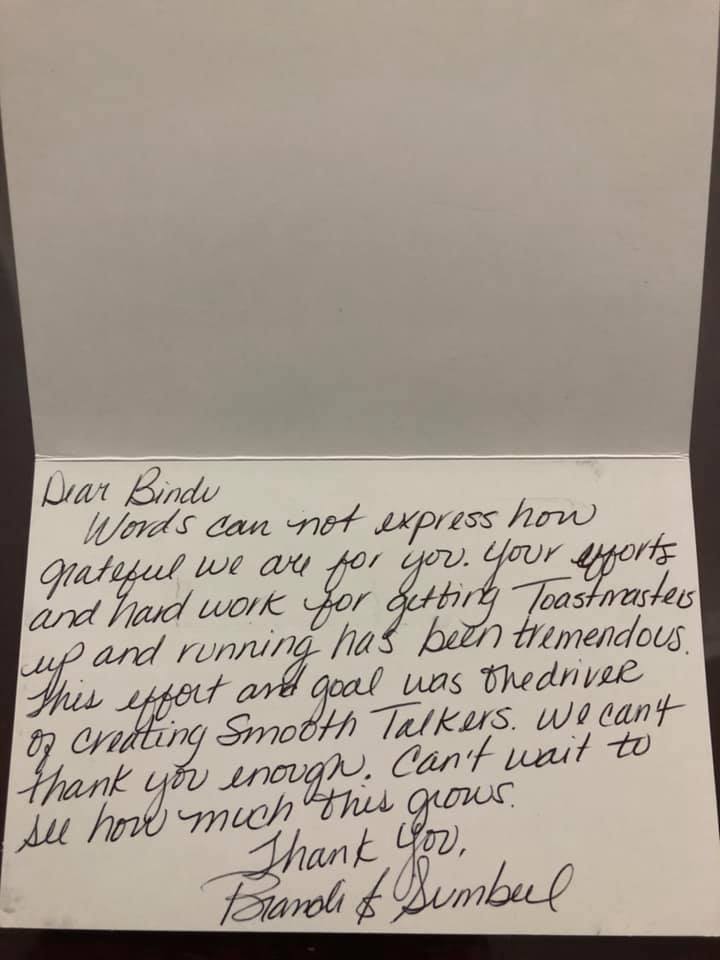 Dear Bindu
Words can not express how
grateful we are for you. Your efforts
and hard work for getting Toastmasters
up and running has been tremendous.
This effort and goal was the driver
of creating Smooth Talkers. We can't
thank you enough. Can't wait to
see how much this grows.
Thank You,
Brandi & Sumbul